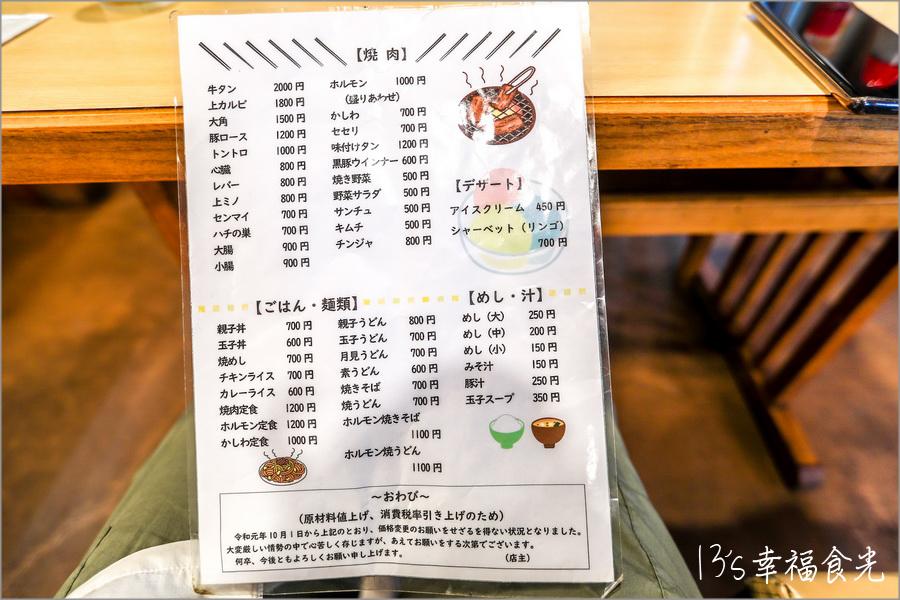 【焼 肉】
牛タン 2000円
上カルビ 1800円
大角 1500円
豚ロース 1200円
トントロ 1000円
心臓 800円
レバー 800円
上ミノ 800円
センマイ 700円
ハチの巣 700円
大腸 900円
小腸 900円
ホルモン 1000円
(盛りあわせ)
かしわ 700円
セセリ 700円
味付けタン 1200円
黒豚ウインナー 600円
焼き野菜 500円
野菜サラダ 500円
サンチュ 500円
キムチ 500円
チンジャ 800円
【デザート】
アイスクリーム 450円
シャーベット(リンゴ)
700円
【ごはん・麺類】
親子丼 700円
玉子丼 600円
焼めし 700円
チキンライス 700円
カレーライス 600円
焼肉定食 1200円
ホルモン定食 1200円
かしわ定食 1000円
親子うどん 800円
玉子うどん 700円
月見うどん 700円
素うどん 600円
焼きそば 700円
焼うどん 700円
ホルモン焼きそば
1100円
ホルモン焼うどん
1100円
【めし・汁】
めし(大) 250円
めし(中) 200円
めし(小) 150円
みそ汁 150円
豚汁 250円
玉子スープ 350円
～おわび～
(原材料値上げ、消費税率引き上げのため)
令和元年10月1日から上記のとおり、価格変更のお願いをせざるを得ない状況となりました。
大変厳しい情勢の中で心苦しく存じますが、あえてお願いをする次第でございます。
何卒、今後ともよろしくお願い申し上げます。 (店主)
13's幸福食光